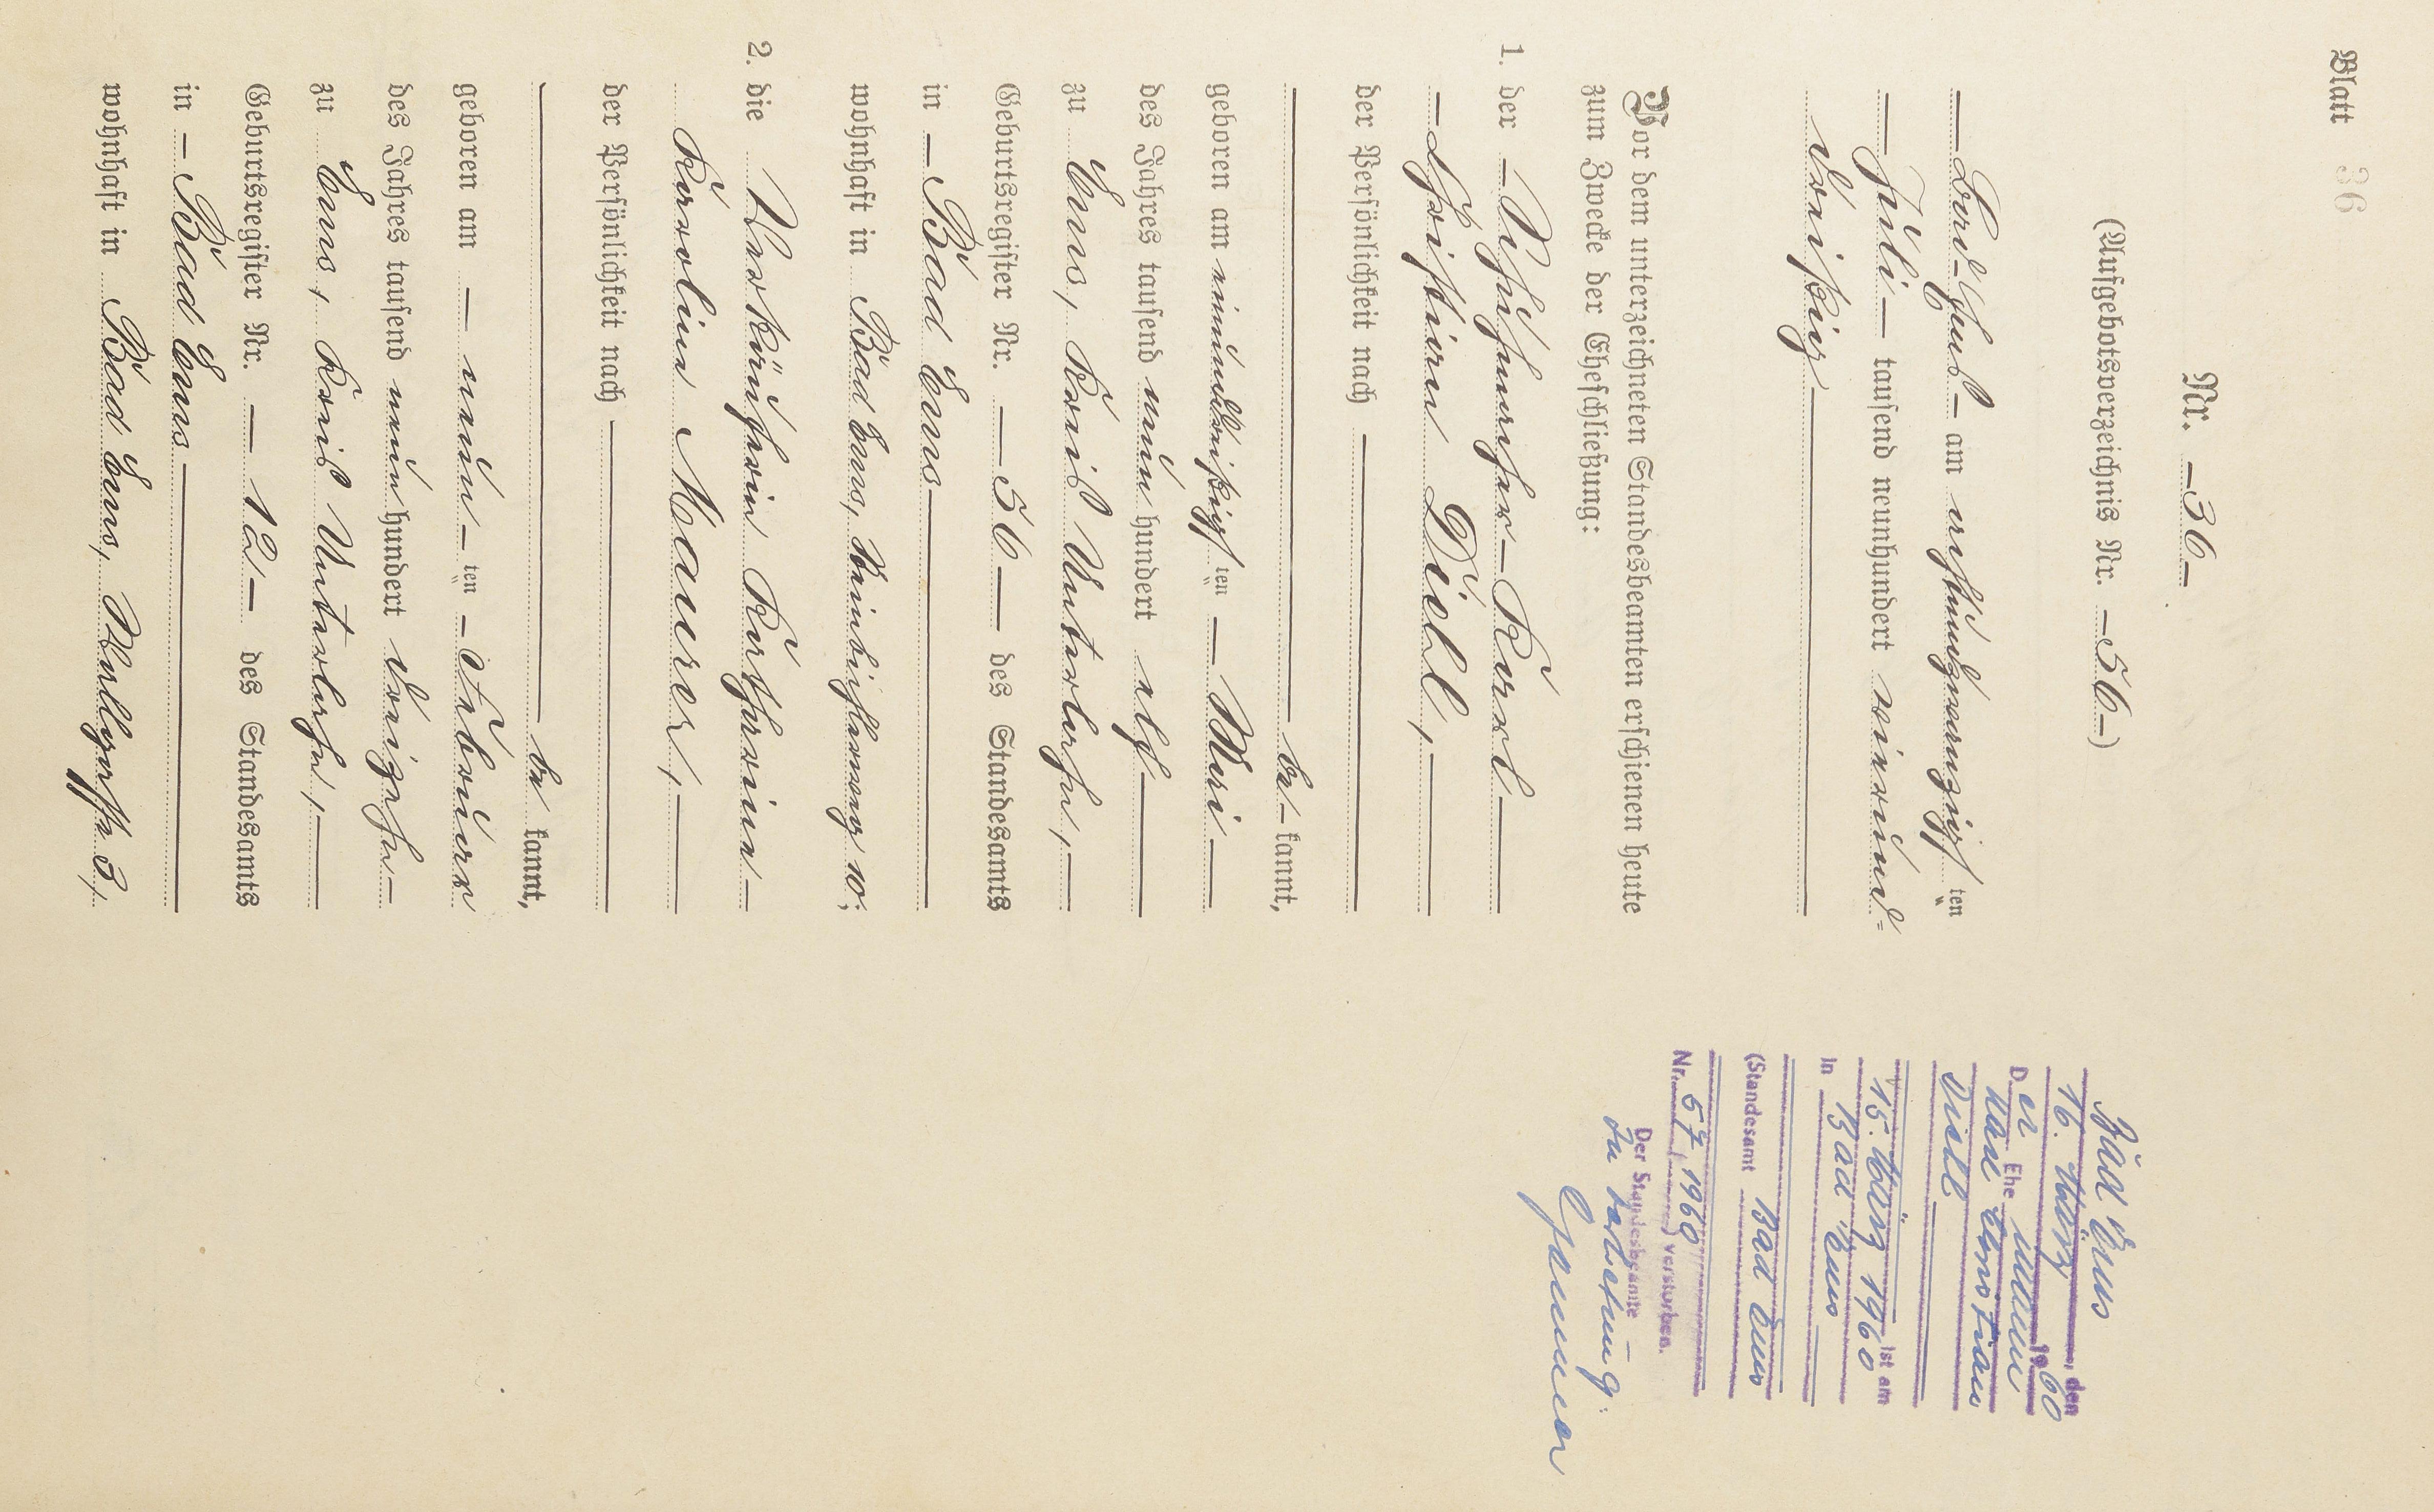 Blatt 36
Nr. – 36 –
(Aufgebotsverzeichnis Nr. – 56 –)
– Bad Ems – am achtundzwanzigsten
– Juli – tausend neunhundert vierund-
dreißig –
Vor dem unterzeichneten Standesbeamten erschienen heute
zum Zwecke der Eheschließung:
1. der – – Karl –
– Christian Diehl, –
der Persönlichkeit nach –
– be – kannt,
geboren am einunddreißigsten – Mai –
des Jahres tausend neun hundert elf –
zu Ems, Kreis Unterlahn, –
Geburtsregister Nr. – 56 – des Standesamts
in – Bad Ems –
wohnhaft in Bad Ems, 10;
2. die Verkäuferin Katharina –
Karoline Maurer, –
der Persönlichkeit nach –
– be kannt,
geboren am – neun – ten – Februar
des Jahres tausend neun hundert dreizehn –
zu Ems, Kreis Unterlahn, –
Geburtsregister Nr. – 12 – des Standesamts
in – Bad Ems –
wohnhaft in Bad Ems, Wallgasse 3,
Bad Ems, den
16. März 1960
Der Ehemann
Karl Christian
Diehl
ist am
15. März 1960
in Bad Ems
(Standesamt Bad Ems
Nr. 57, 1960) verstorben.
Der Standesbeamte
In Vertretung: